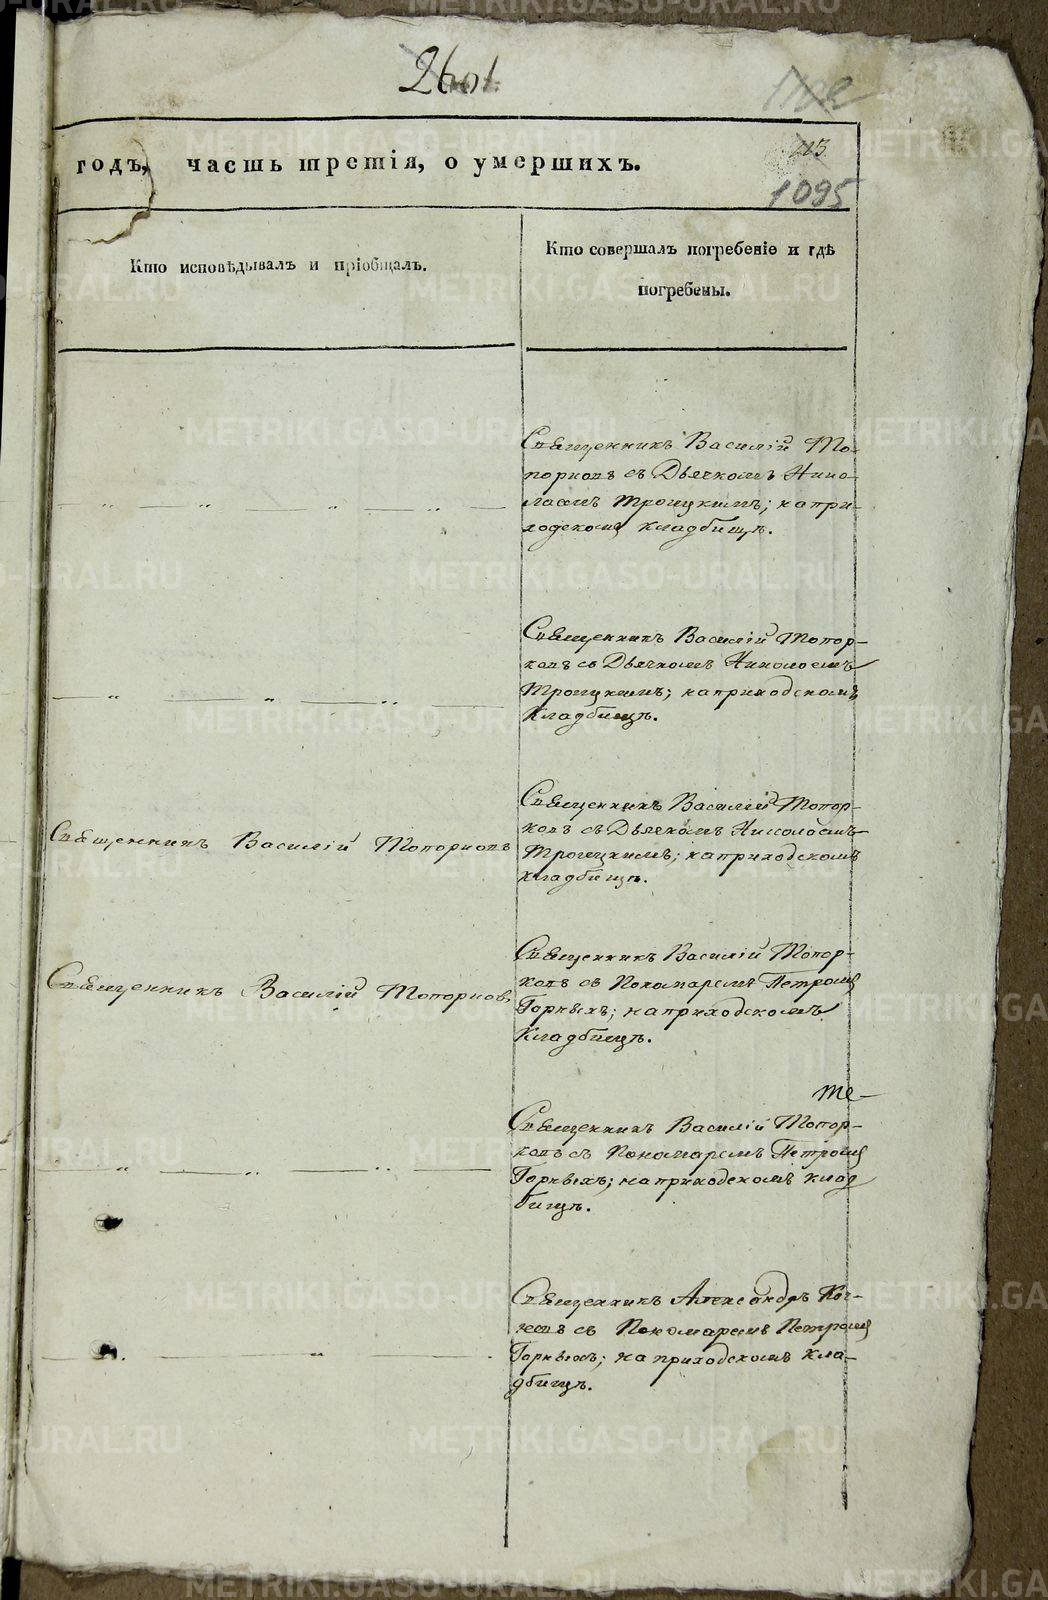 1095
годъ, часть третія, о умершихъ.
Кто исповѣдывалъ и пріобщалъ.
Кто совершалъ погребеніе и гдѣ
погребены.
Священникъ Василій То-
порковъ съ Дьячкомъ Нико-
лаемъ Троицкимъ; на при-
ходскомъ кладбищѣ.
Священникъ Василій Топор-
ковъ съ Дьячкомъ Николаемъ
Троицкимъ; на приходскомъ
кладбищѣ.
Священникъ Василій Топорковъ
Священникъ Василій Топор-
ковъ съ Дьячкомъ Николаемъ
Троицкимъ; на приходскомъ
кладбищѣ.
Священникъ Василій Топорковъ
Священникъ Василій Топор-
ковъ съ Пономаремъ Петромъ
Горныхъ; на приходскомъ
кладбищѣ.
те-
Священникъ Василій Топор-
ковъ съ Пономаремъ Петромъ
Горныхъ; на приходскомъ клад
бищѣ.
Священникъ Александръ
съ Пономаремъ Петромъ
Горныхъ; на приходскомъ кла-
дбищѣ.
METRIKI.GASO-URAL.RU